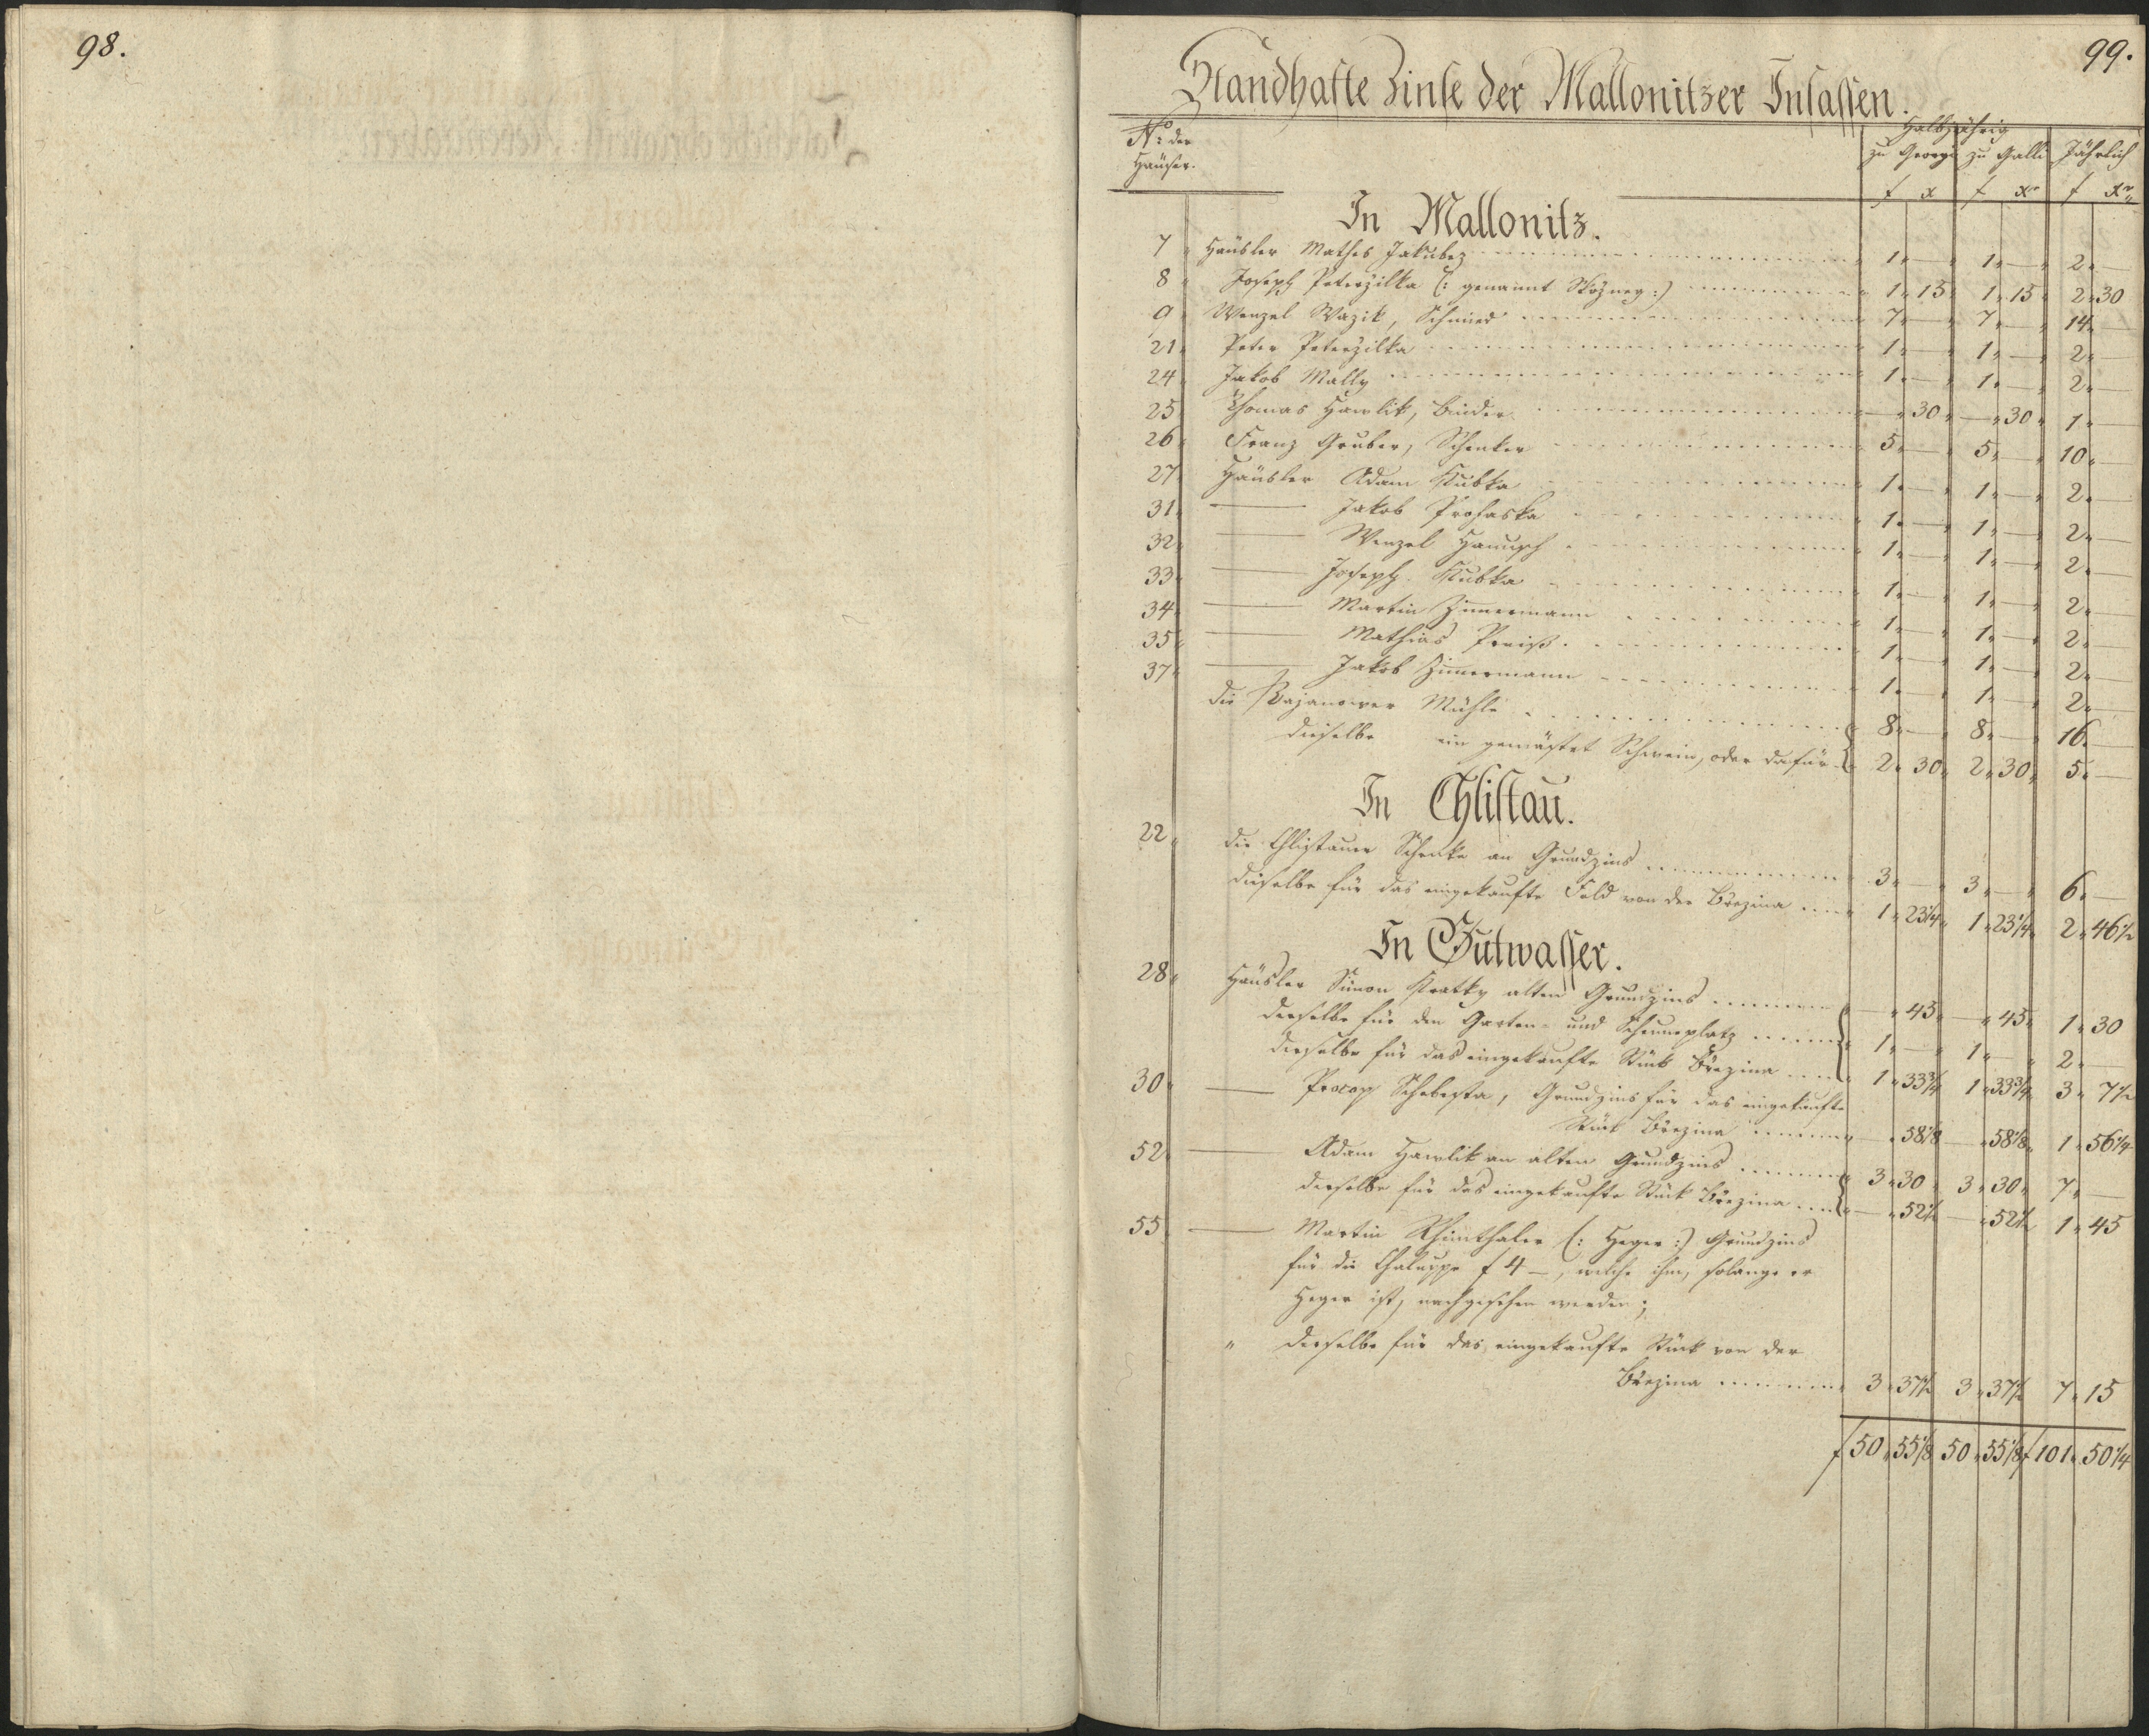 98.
99.
Standhafte Zinse der Mallonitzer Insassen.
No der Häuser.
Halbjährig
zu Georgi zu Galli Jährlich
f x f xr f xr
In Mallonitz.
7 Häusler Mathes Jakubez 1 — 1 — 2 —
8 Joseph Peterzilka (: genannt :) 1 15 1 15 2 30
9 Wenzel Wazik, Schmied 7 — 7 — 14 —
21 Peter Peterzilka 1 — 1 — 2 —
24 Jakob Mally 1 — 1 — 2 —
25 Thomas Hawlik, Binder — 30 — 30 1 —
26 Franz Gruber, Schenker 5 — 5 — 10 —
27 Häusler Adam Kubka 1 — 1 — 2 —
31 — Jakob Prohaska 1 — 1 — 2 —
32 — Wenzel Hanusch 1 — 1 — 2 —
33 — Joseph Kubka 1 — 1 — 2 —
34 — Martin Zimmermann 1 — 1 — 2 —
35 — Mathias Preiß 1 — 1 — 2 —
37 — Jakob Zimmermann 1 — 1 — 2 —
die Kajanower Mühle 8 — 8 — 16 —
dieselbe ein gemästet Schwein, oder dafür 2 30 2 30 5 —
In Chlistau.
22 die Chlistauer Schenke an Grundzins 3 — 3 — 6 —
dieselbe für das eingekaufte Feld von der Brezina 1 23¼ 1 23¼ 2 46½
In Gutwasser.
28 Häusler Simon Kratky alten Grundzins — 45 — 45 1 30
derselbe für den Garten- und Scheuerplatz 1 — 1 — 2 —
derselbe für das eingekaufte Stück Brezina 1 33¾ 1 33¾ 3 7½
30 — Procop Schebesta, Grundzins für das eingekaufte
Stück Brezina — 58⅛ — 58⅛ 1 56¼
52 — Adam Hawlik an alten Grundzins 3 30 3 30 7 —
derselbe für das eingekaufte Stück Brezina — 52½ — 52½ 1 45
55 — Martin Rheinthaler (: Heger :) Grundzins
für die Chaluppe f 4 —, welche ihm, solange er
Heger ist, nachgesehen werden;
" derselbe für das eingekaufte Stück von der
Brezina 3 37½ 3 37½ 7 15
f 50 55⅛ 50 55⅛ f 101 50¼